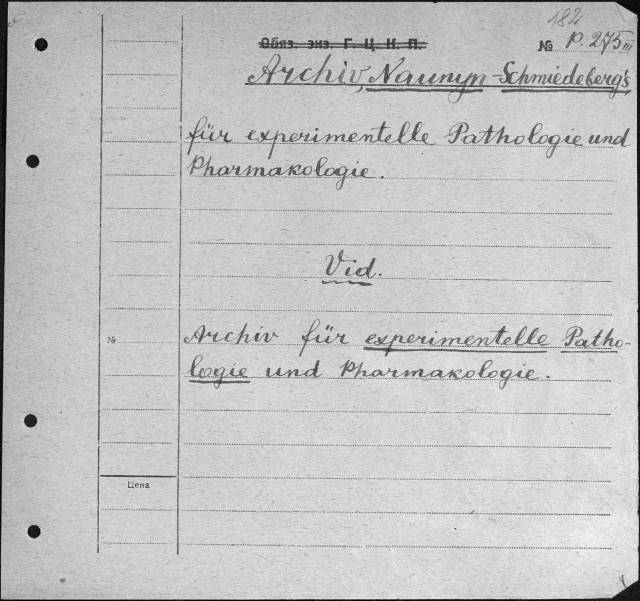 182
Обяз. экз. Г. Ц. К. П.
№ P. 275 III
Archiv, Naunyn-Schmiedeberg's
für experimentelle Pathologie und
Pharmakologie.
Vid.
№
Archiv für experimentelle Patho-
logie und Pharmakologie.
Цена